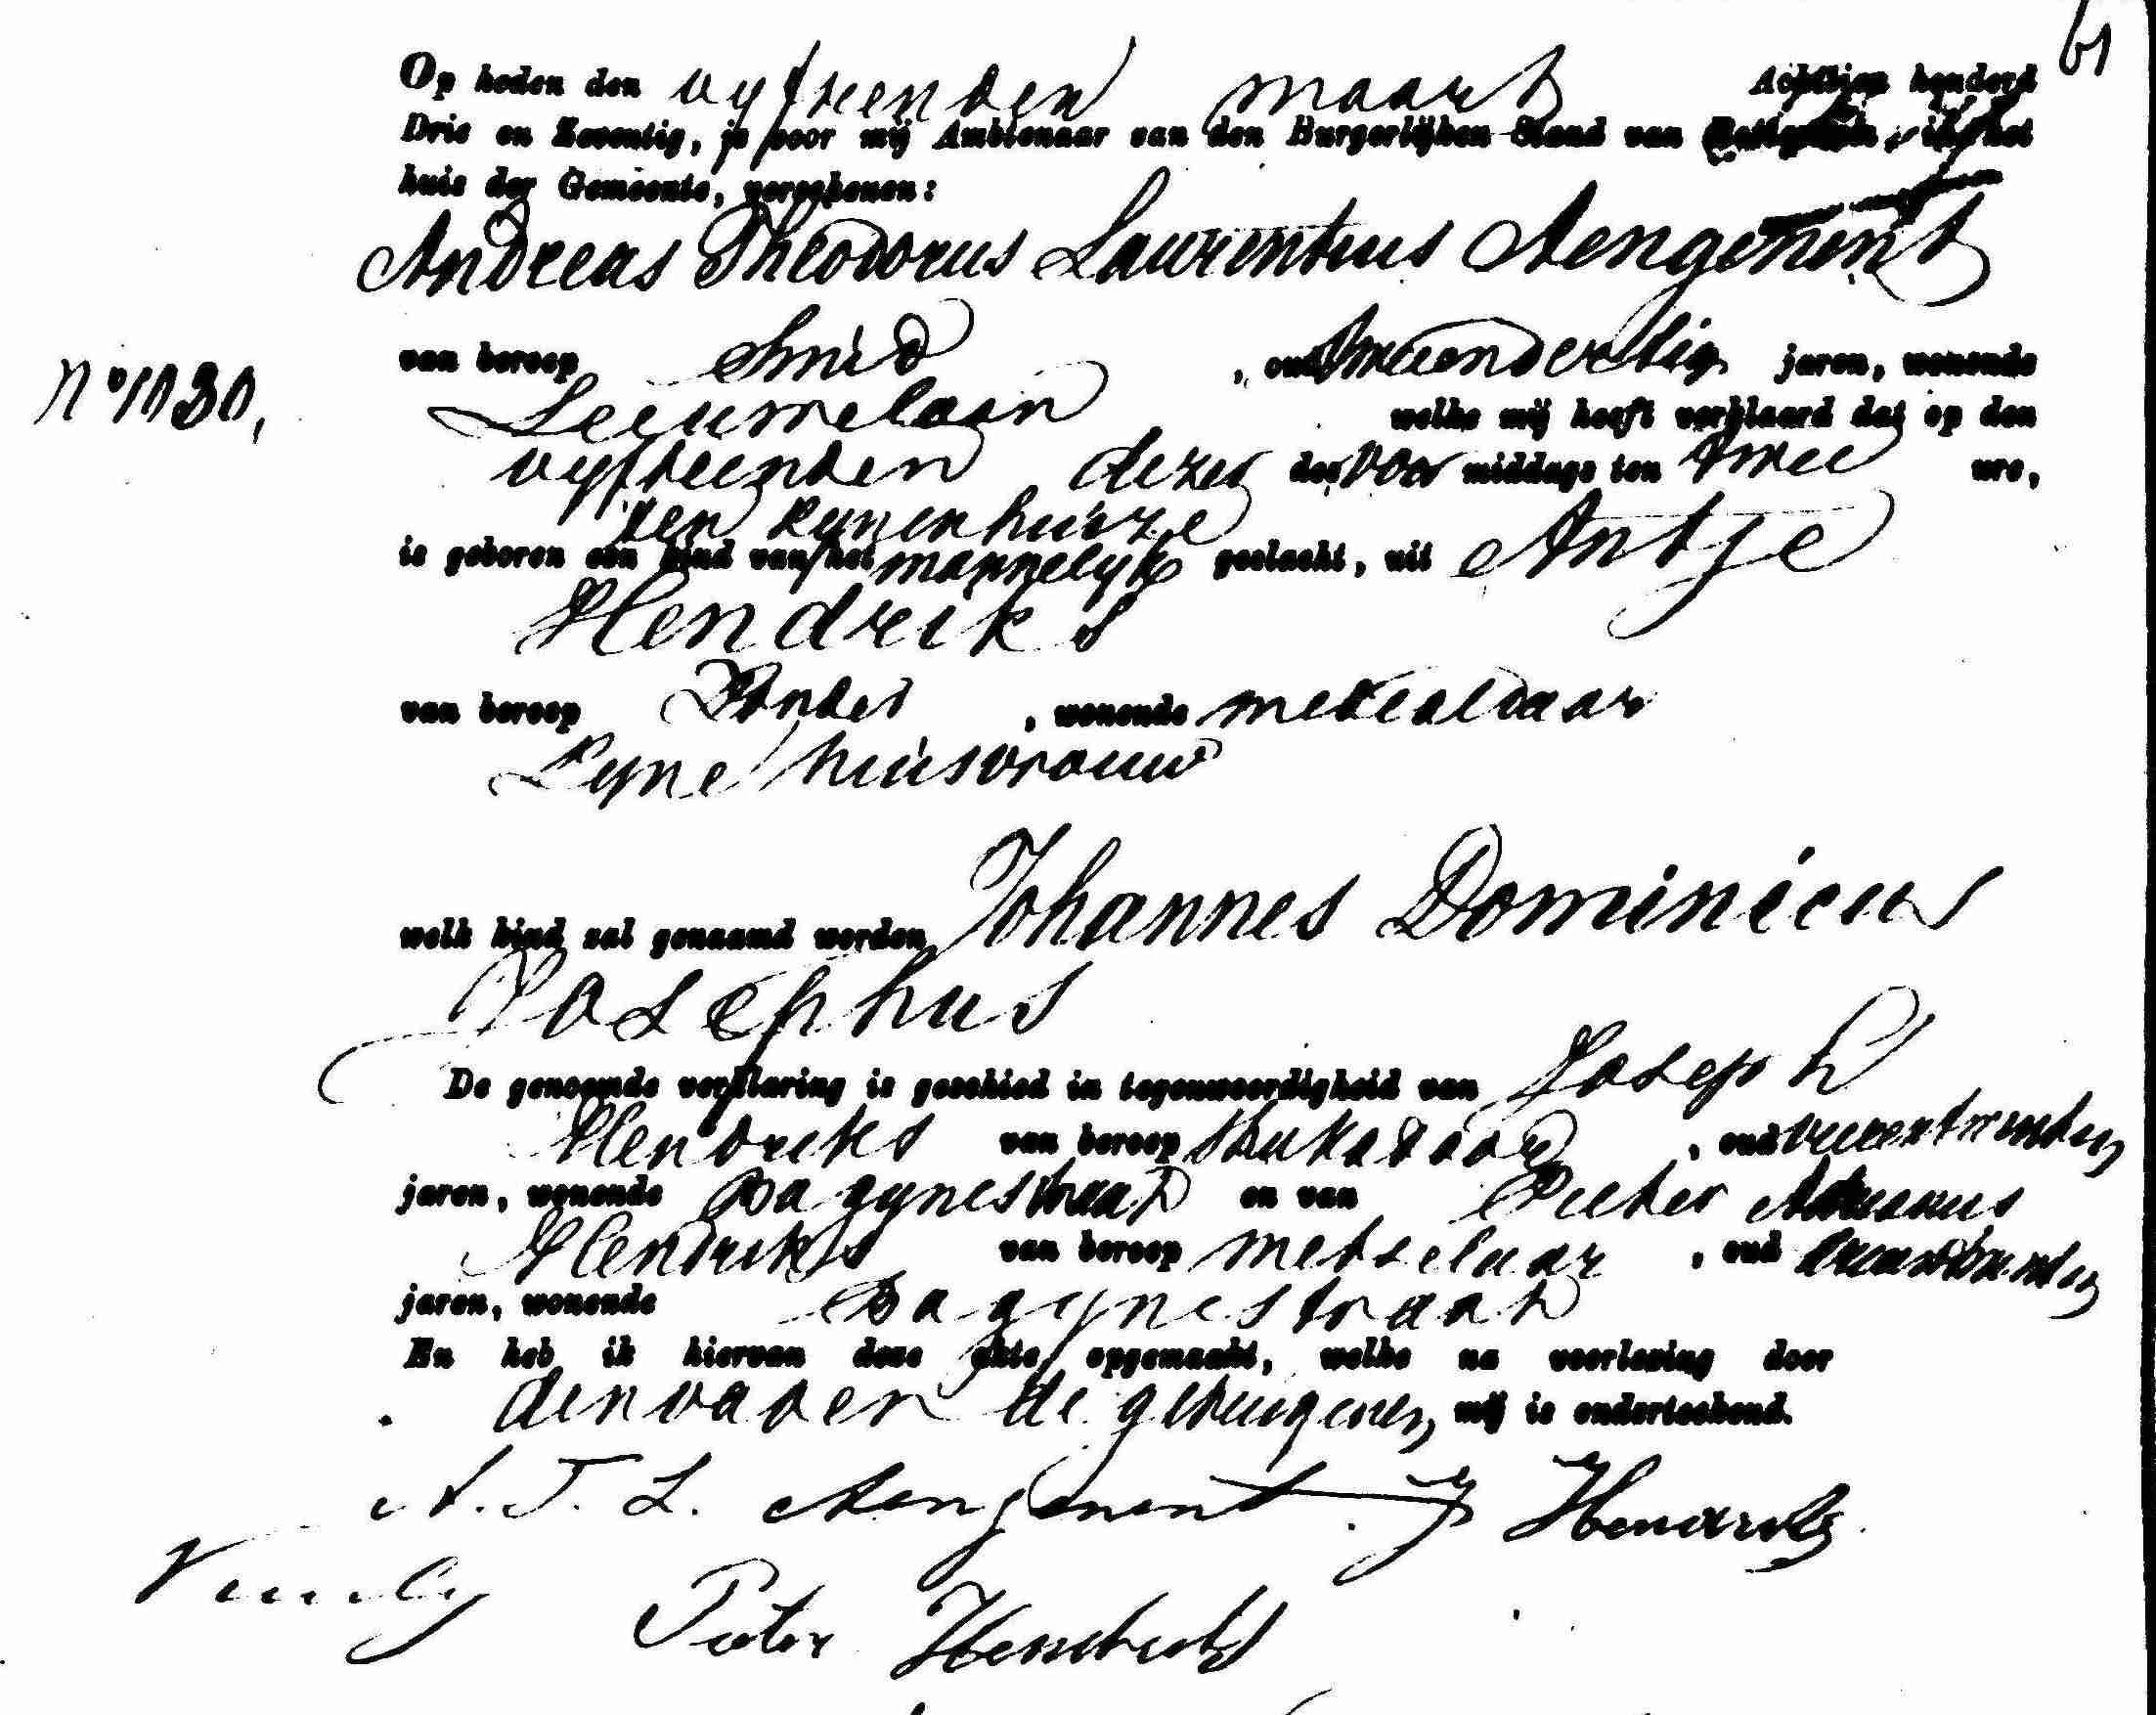 61
Op heden den vyftienden maart Achttien honderd
Drie en Zeventig, is voor mij Ambtenaar van den Burgerlijken Stand van in het
huis der Gemeente, verschenen:
Andreas Theodorus Laurentius Aengenent
van beroep Smid , oud tweeendertig jaren, wonende
No 1030,
Leeuwelaan welke mij heeft verklaard dat op den
vyftienden dezer des voor middags ten twee ure,
ten zynenhuize
is geboren een kind van het mannelyk geslacht, uit Antje
Hendriks
van beroep Zonder , wonende medealdaar
Zyne huisvrouw
welk kind zal genaamd worden Johannes Dominicus
Josephus
De genoemde verklaring is geschied in tegenwoordigheid van Joseph
Hendriks van beroep Stukadoor , oud
jaren, wonende Bagynestraat en van Pieter Adrianus
Hendriks van beroep metselaar , oud
jaren, wonende Bagynestraat
En heb ik hiervan deze akte opgemaakt, welke na voorlezing door
den vader de getuigen en mij is onderteekend.
A. T. L. Aengenent J Hendriks
Pieter Hendriks